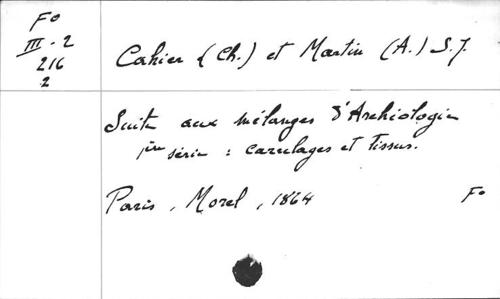 Fo
III - 2
216
2
Cahier (Ch.) et Martin (A.) S.J.
Suite aux mélanges d'Archéologie
1ère série : carrelages et tissus.
Paris, Morel, 1864
Fo